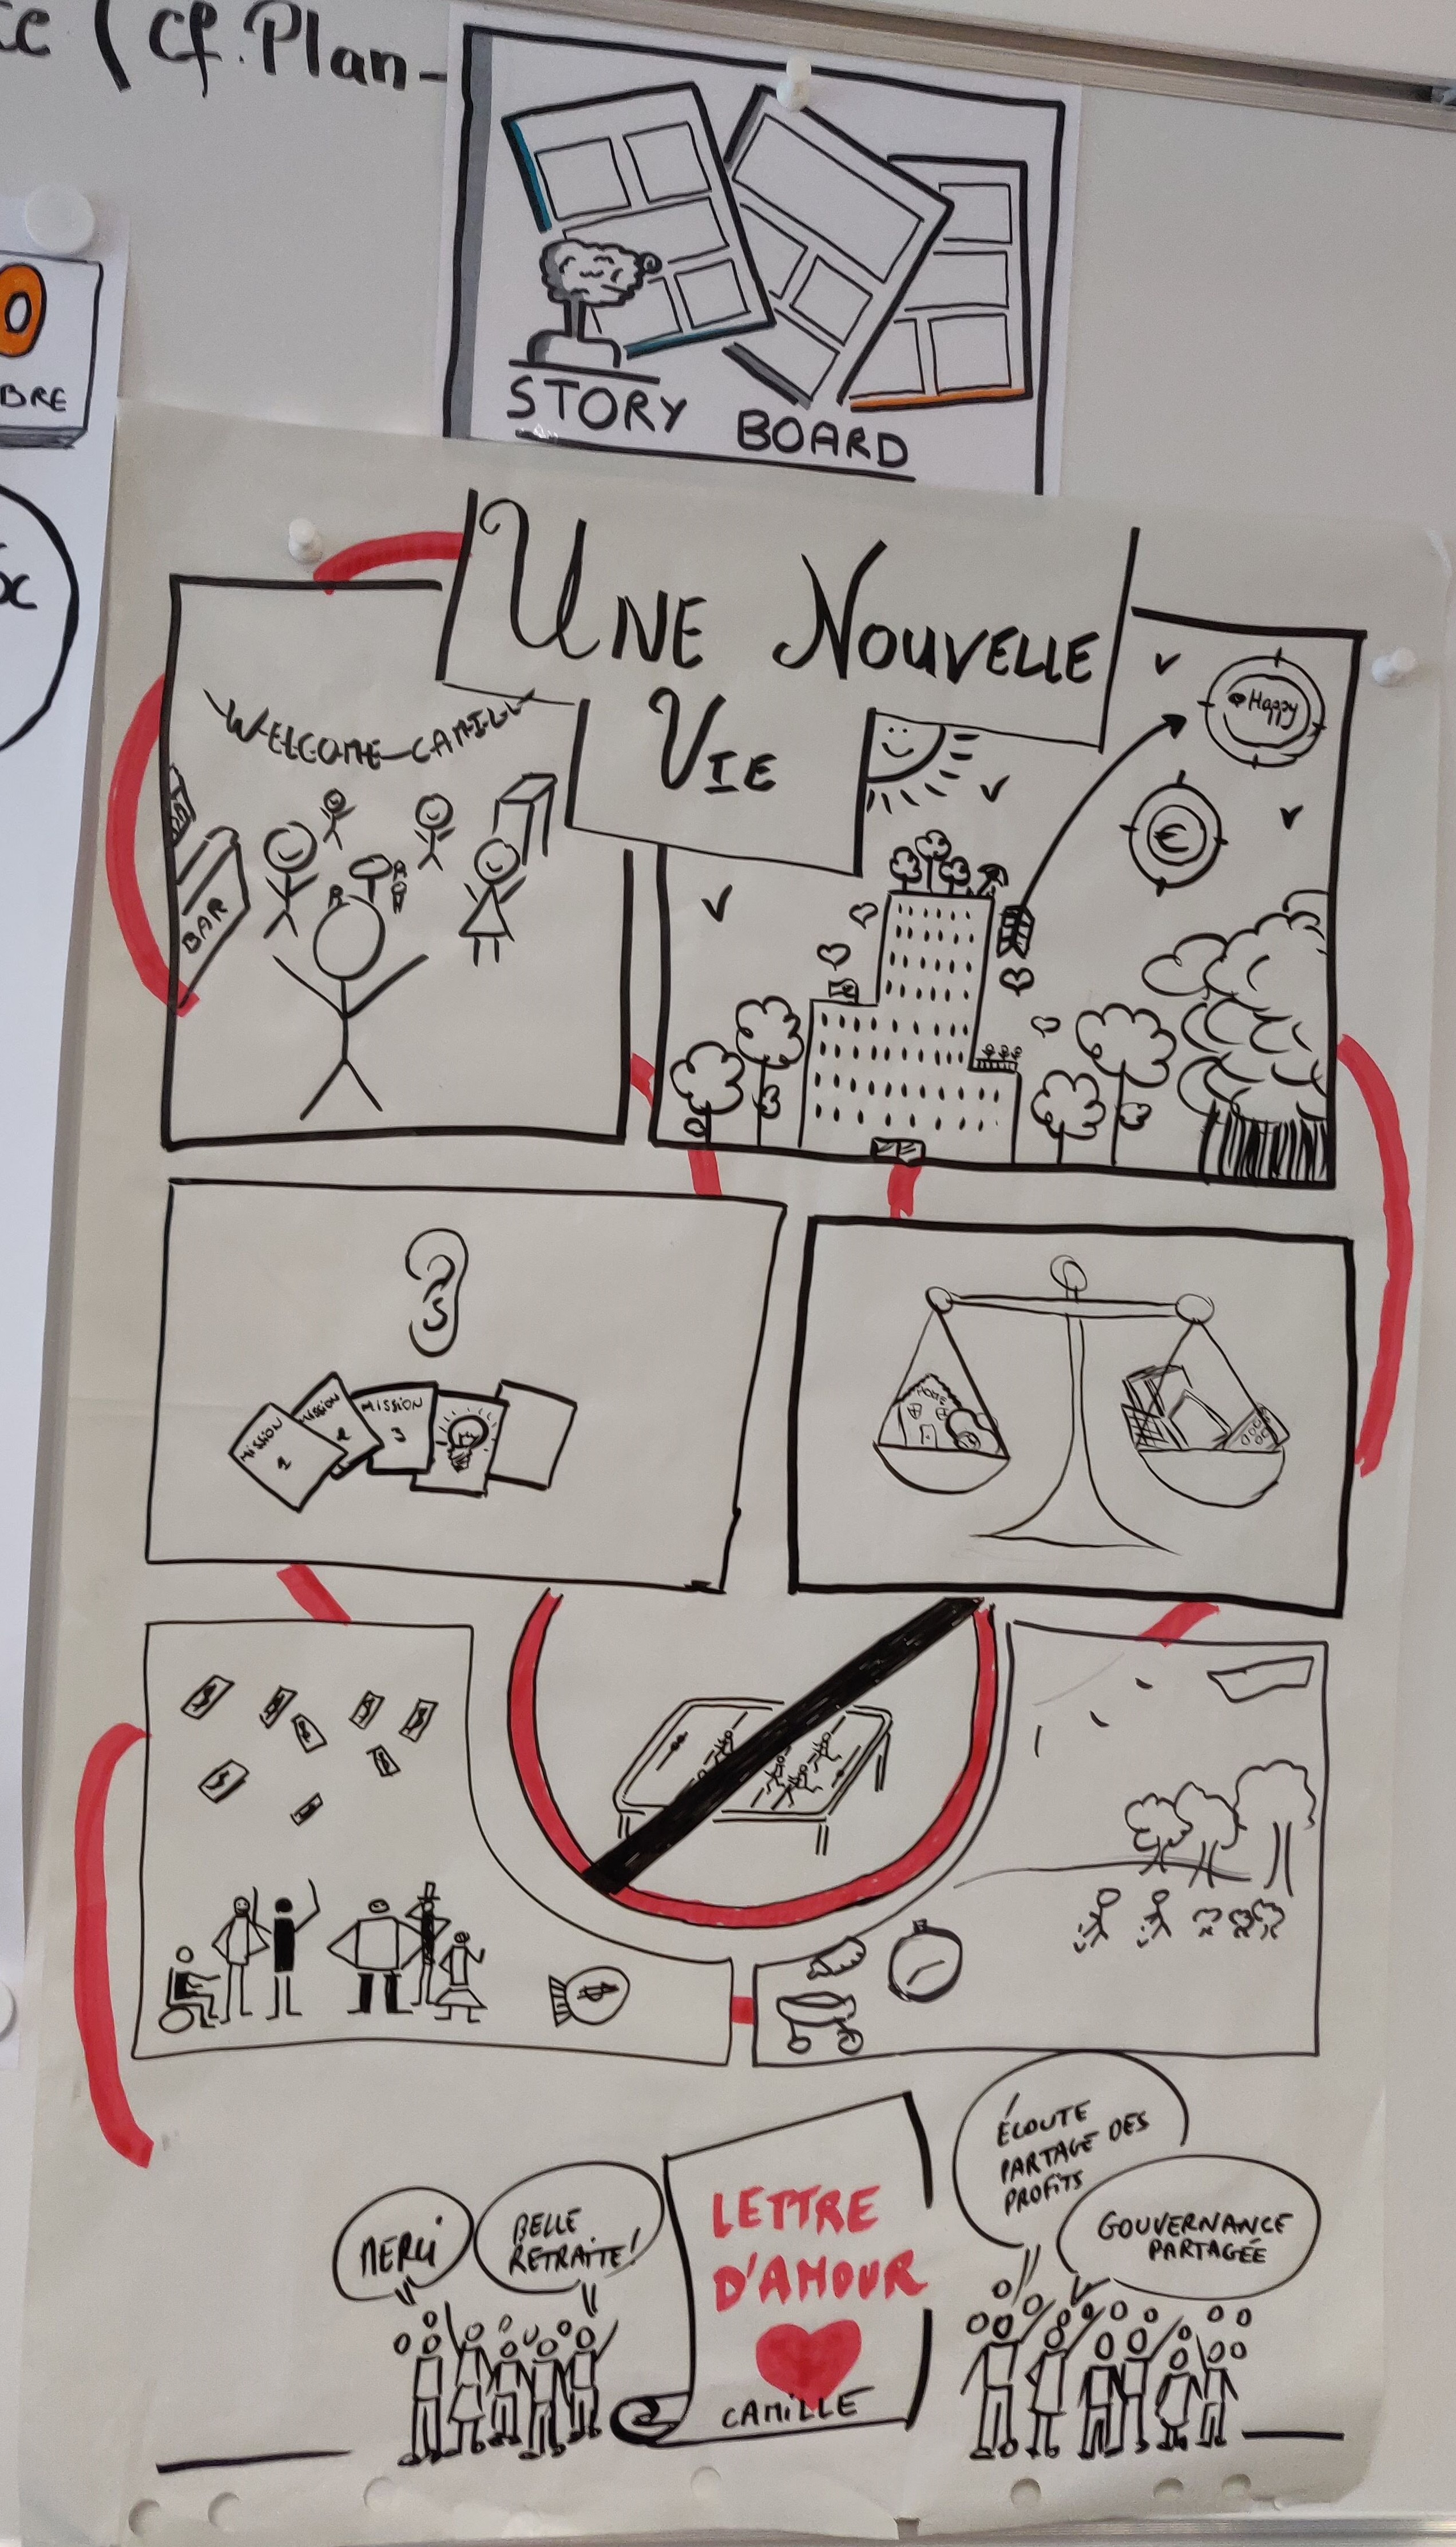 (cf. Plan-
STORY BOARD
BRE
UNE NOUVELLE
VIE
WELCOME CAMILL
BAR
Happy
€
MISSION
1
MISSION
2
MISSION
3
HOME
$
MERCI
BELLE
RETRAITE!
LETTRE
D'AMOUR
CAMILLE
ÉCOUTE
PARTAGE DES
PROFITS
GOUVERNANCE
PARTAGÉE